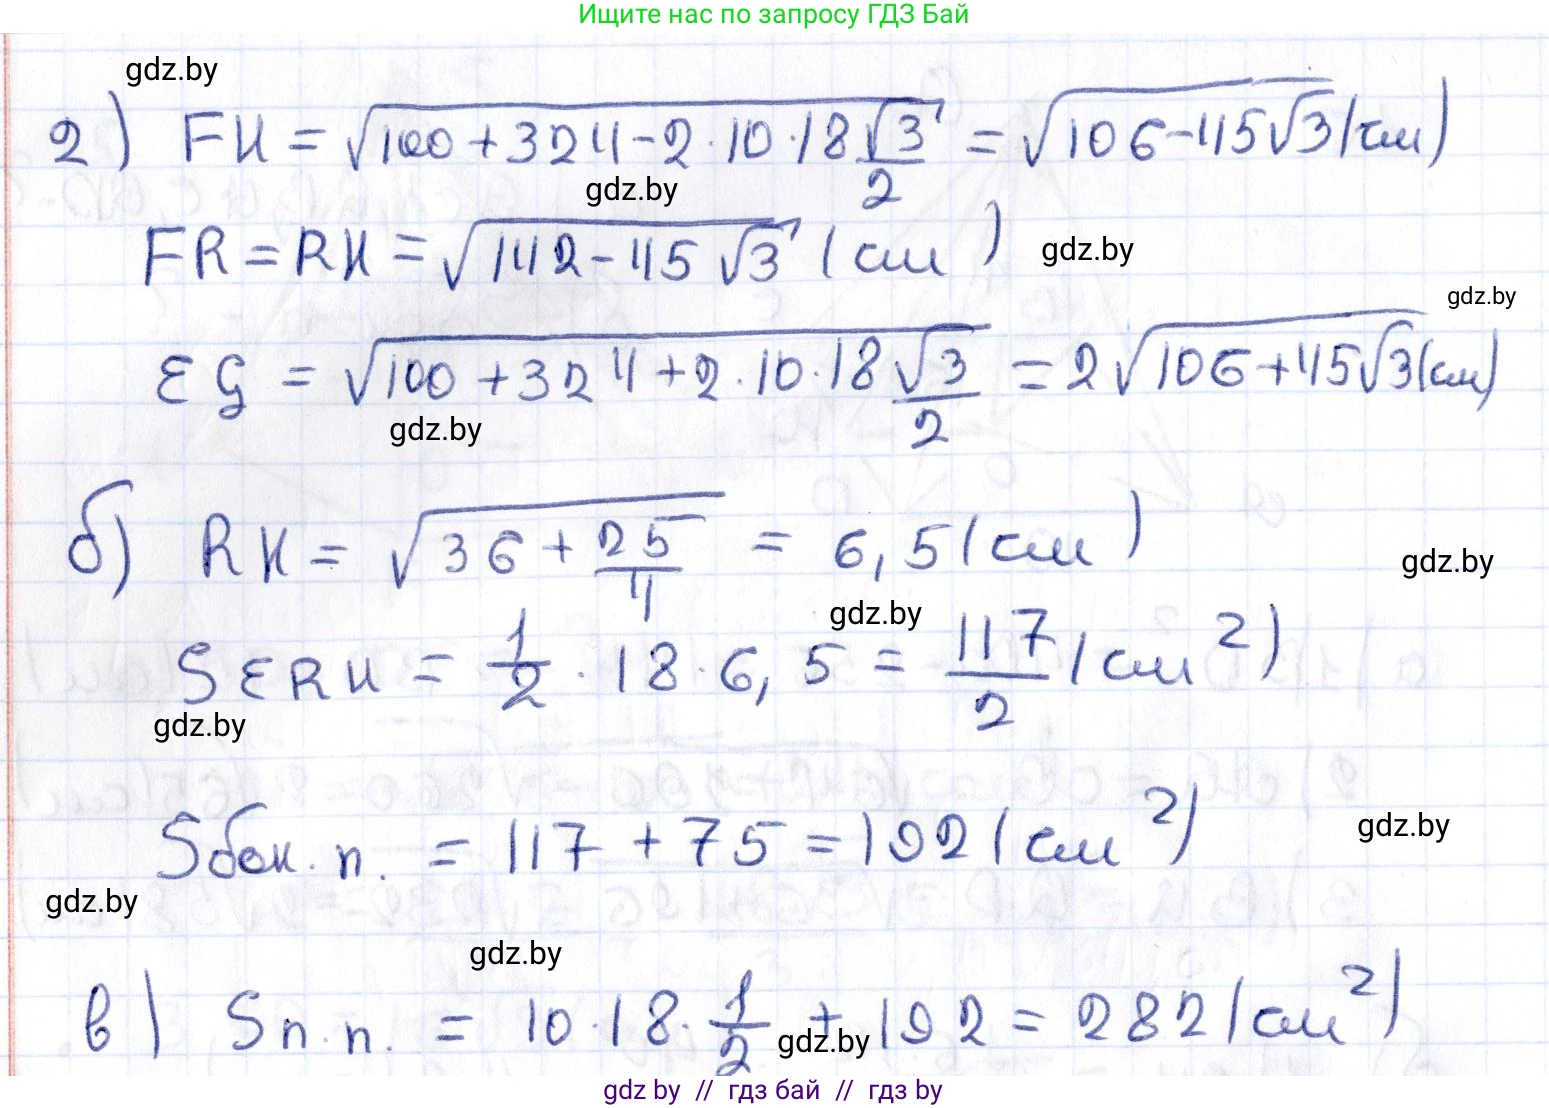 Ищите нас по запросу ГДЗ Бай
gdz.by
2) FK = √(100 + 324 - 2 · 10 · 18 √3/2) = √(106 - 45√3) (см)
gdz.by
FR = RK = √(142 - 45√3) (см)
gdz.by
gdz.by
EG = √(100 + 324 + 2 · 10 · 18 √3/2) = 2√(106 + 45√3) (см)
gdz.by
б) RK = √(36 + 25/4) = 6,5 (см)
gdz.by
gdz.by
SERK = 1/2 · 18 · 6,5 = 117/2 (см²)
gdz.by
Sбок. п. = 117 + 75 = 192 (см²)
gdz.by
gdz.by
gdz.by
в) Sп.п. = 10 · 18 · 1/2 + 192 = 282 (см²)
gdz.by
gdz by // гдз бай // гдз by